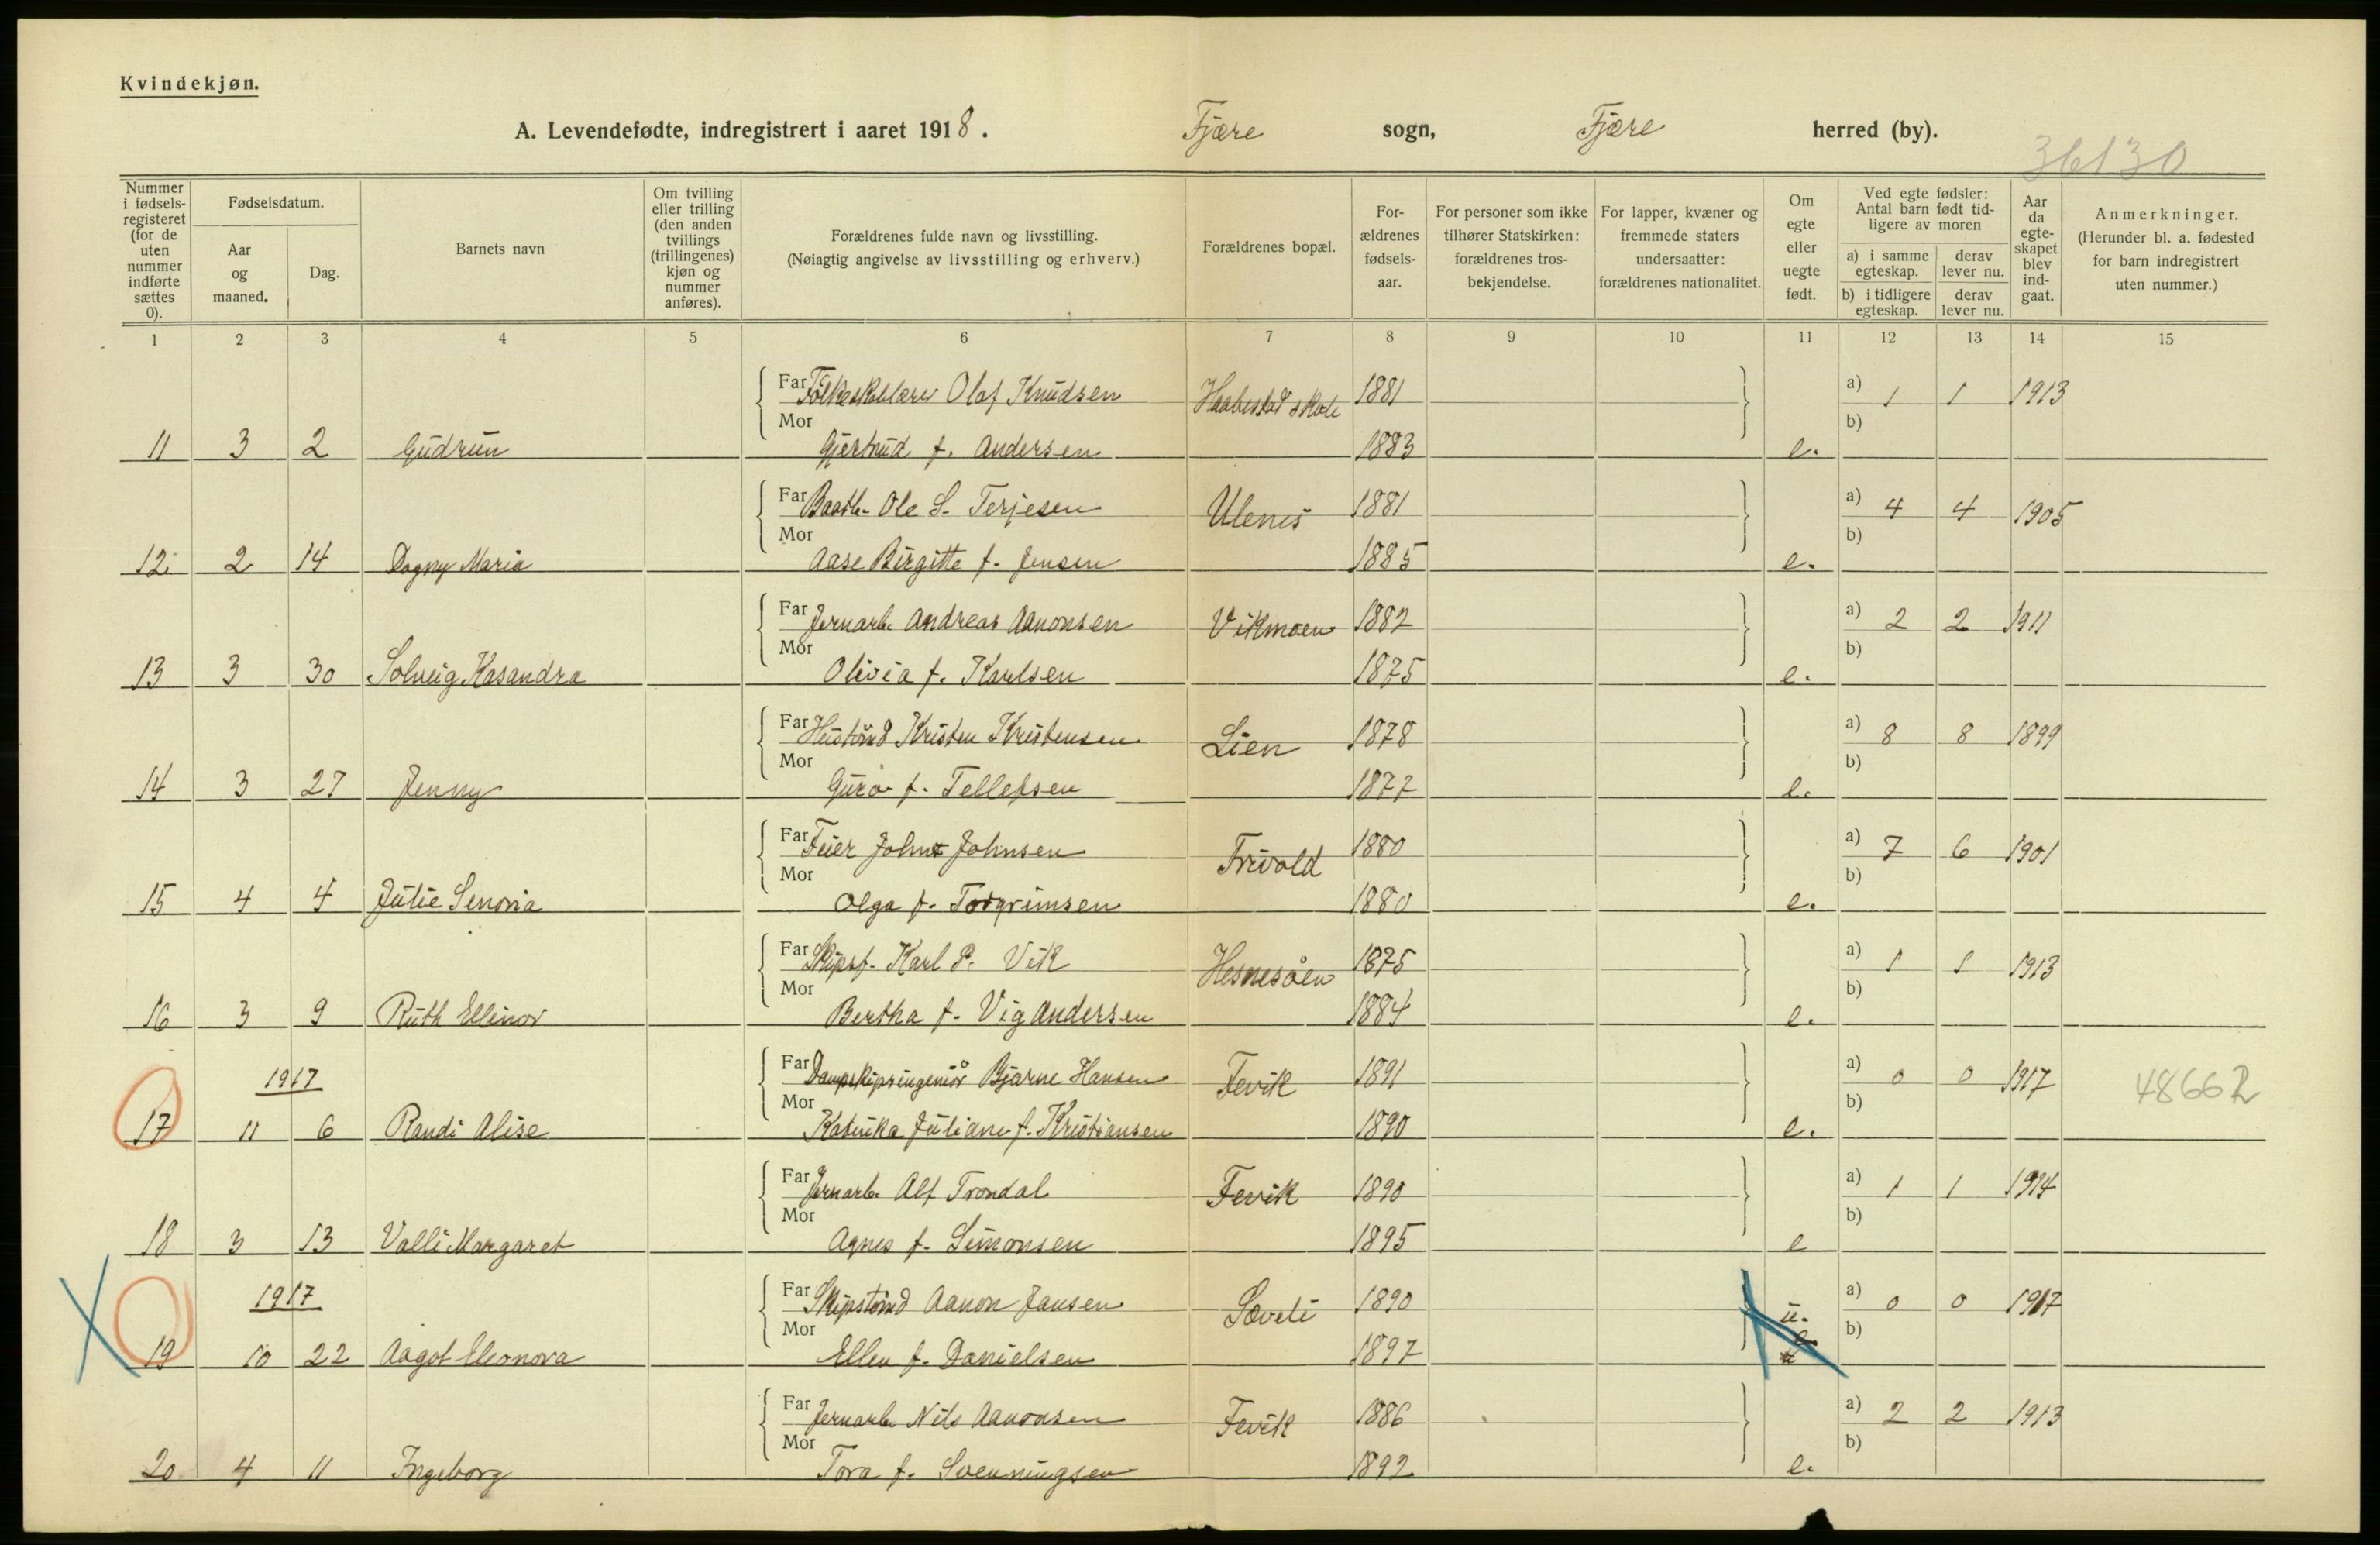 Kvindekjøn.
A. Levendefødte, indregistrert i aaret 1918. Fjære sogn, Fjære herred (by).
36130
Nummer i fødsels-registeret (for de uten nummer indførte sættes 0).
Fødselsdatum.
Aar og maaned.
Dag.
Barnets navn
Om tvilling eller trilling (den anden tvillings (trillingenes) kjøn og nummer anføres).
Forældrenes fulde navn og livsstilling.
(Nøiagtig angivelse av livsstilling og erhverv.)
Forældrenes bopæl.
For-ældrenes fødsels-aar.
For personer som ikke tilhører Statskirken: forældrenes tros-bekjendelse.
For lapper, kvæner og fremmede staters undersaatter: forældrenes nationalitet.
Om egte eller uegte født.
Ved egte fødsler: Antal barn født tid-ligere av moren
a) i samme egteskap.
derav lever nu.
b) i tidligere egteskap.
derav lever nu.
Aar da egte-skapet blev ind-gaat.
Anmerkninger.
(Herunder bl. a. fødested for barn indregistrert uten nummer.)
1 2 3 4 5 6 7 8 9 10 11 12 13 14 15
Far Folkeskolelærer Olaf Knudsen Haabestad skole 1881 a) 1 1 1913
Mor b)
11 3 2 Gudrun Gjertrud f. Andersen 1883 e.
Far Baatb. Ole S. Terjesen Ulenes 1881 a) 4 4 1905
Mor b)
12 2 14 Dagny Maria Aase Birgitte f. Jensen 1885 e.
Far Jernarb. Andreas Aanonsen Vikmoen 1882 a) 2 2 1911
Mor b)
13 3 30 Solveig Kasandra Olivia f. Karlsen 1875 e.
Far Hustømd Kristen Kristensen Lien 1878 a) 8 8 1899
Mor b)
14 3 27 Jenny Guro f. Tellefsen 1877 e.
Far Feier John Johnsen Frivold 1880 a) 7 6 1901
Mor b)
15 4 4 Julie Senoria Olga f. Torgrimsen 1880 e.
Far Skipsf. Karl P. Vik Hesnesøen 1875 a) 1 1 1913
Mor b)
16 3 9 Ruth Ellinor Bertha f. Vig Andersen 1884 e.
1917 Far Dampskipsingeniør Bjarne Hansen Fevik 1891 a) 0 0 1917 48662
Mor b)
17 11 6 Randi Alise Katinka Juliane f. Kristiansen 1890 e.
Far Jernarb. Alf Trondal Fevik 1890 a) 1 1 1914
Mor b)
18 3 13 Valli Margaret Agnes f. Simonsen 1895 e
1917 Far Skipstømd Aanon Jansen Søveli 1890 u. a) 0 0 1917
Mor b)
19 10 22 Aagot Eleonora Ellen f. Danielsen 1897
Far Jernarb. Nils Aanonsen Fevik 1886 a) 2 2 1913
Mor b)
20 4 11 Ingeborg Tora f. Svenningsen 1892 e.